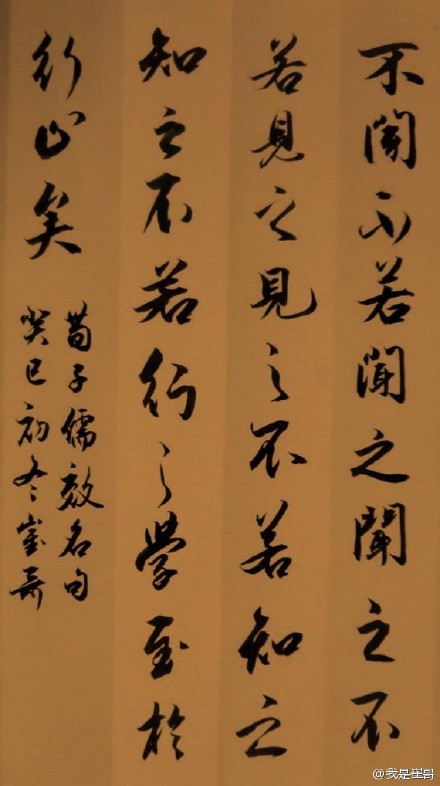 不聞不若聞之聞之不
若見之見之不若知之
知之不若行之學至於
行止矣
荀子儒效名句
癸巳初冬崔
@我是崔哥